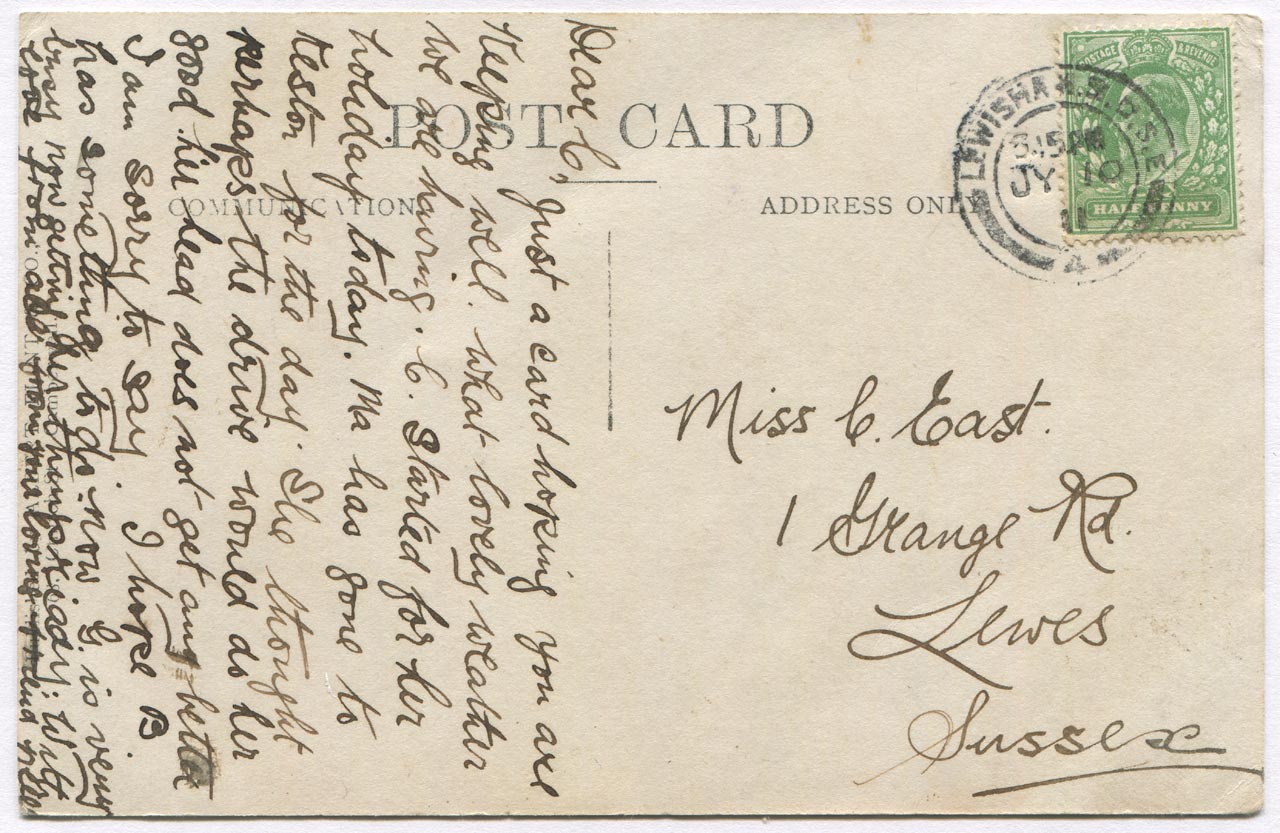 POST CARD
COMMUNICATION
ADDRESS ONLY
POSTAGE & REVENUE
HALFPENNY
LEWISHAM B.O.S.E.
3.15 PM
JY 10
11
4
Dear C, Just a card hoping you are
Keeping well. What lovely weather
we are having. C. Started for her
holiday today. Ma has gone to
Keston for the day. She thought
perhaps the drive would do her
good her head does not get any better
I am sorry to say I hope B
has something to do now G. is very
busy now getting her things ready: with
love from all from your loving friend
Miss C. East.
1 Grange Rd.
Lewes
Sussex